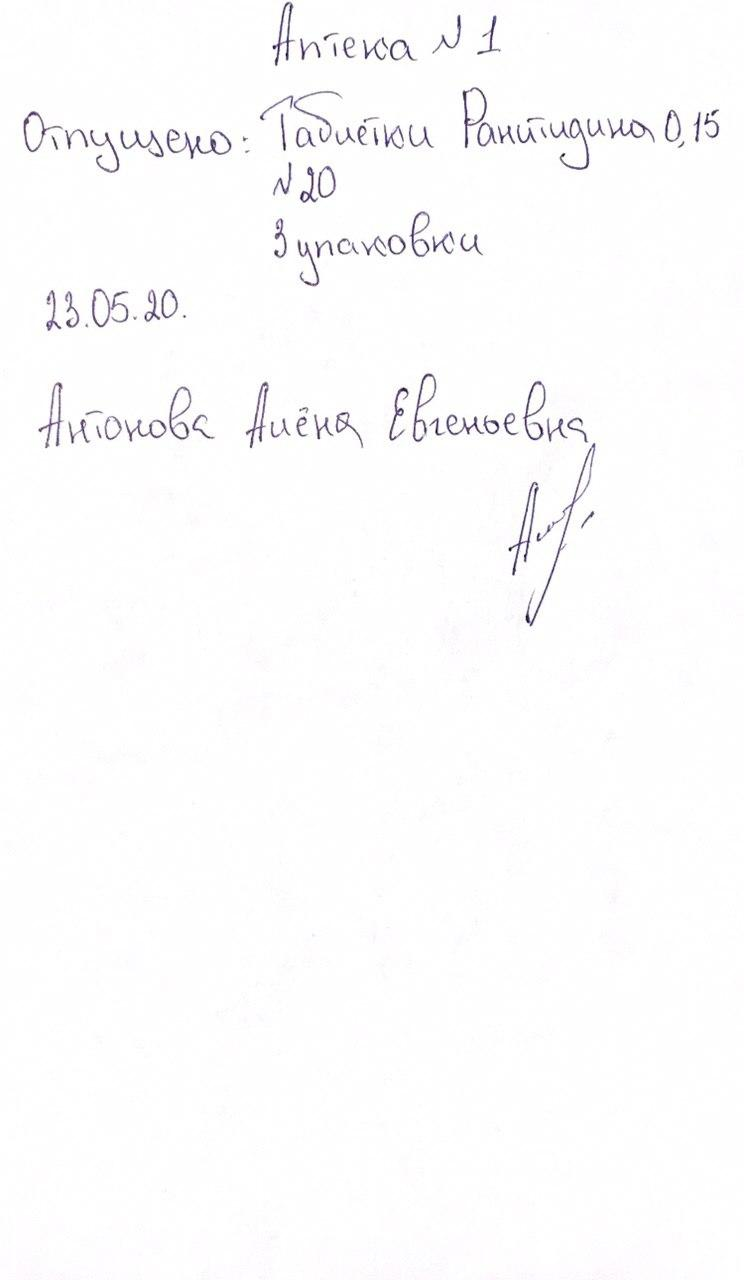 Аптека N 1
Отпущено: Таблетки Ранитидина 0,15
N 20
3 упаковки
23.05.20.
Антонова Алёна Евгеньевна